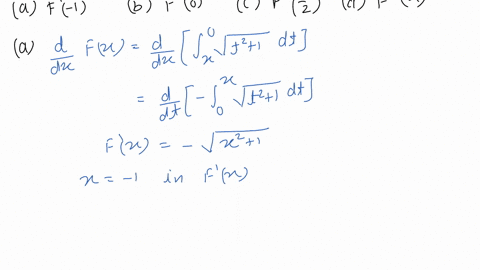 (a) F'(-1) (b) F'(0) (c) F'(1/2)
(a) d/dx F(x) = d/dx [∫_x^0 √(t²+1) dt]
= d/dt [-∫_0^x √(t²+1) dt]
F'(x) = - √(x²+1)
x = -1 in F'(x)